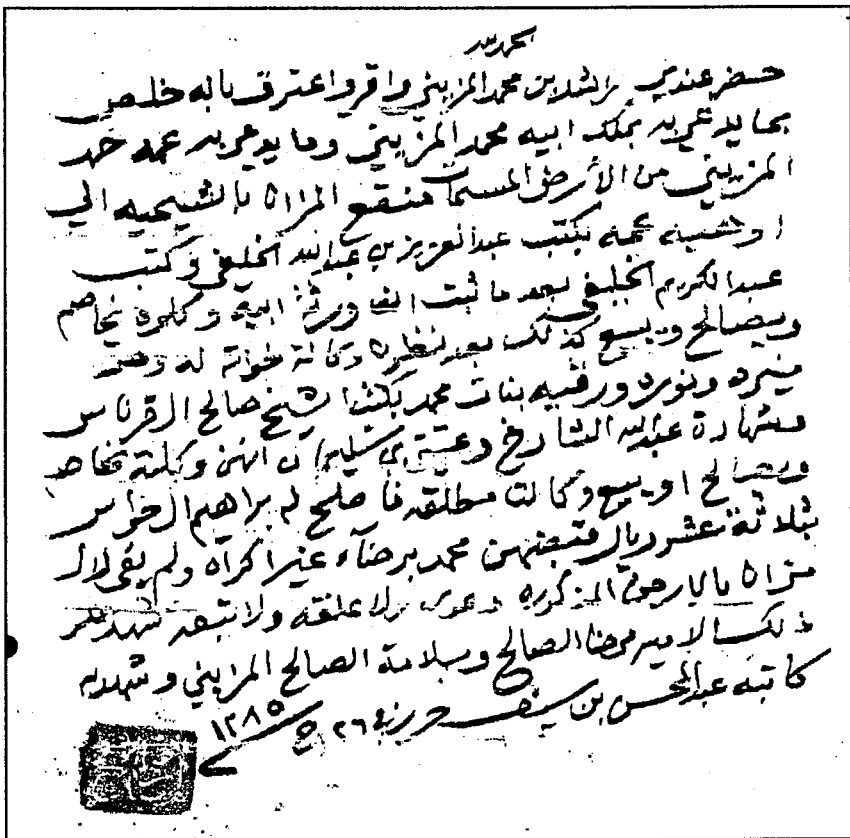 الحمد لله
حضر عندي راشد بن محمد المزيني واقر واعترف بانه خلص
بما يدعي به بملك ابيه محمد المزيني وما يدعي به عمه حمد
المزيني من الأرض المسمات منقع المزان بالشيحيه الي
عمه بكتب عبدالعزيز بن عبدالله الخليفي وكتب
عبدالكريم الخليفي بعد ما ثبت ورثة ابيه وكلوه يخاصم
ويصالح ويبيع كذلك بعد وكالة خواته له وهن
منيره ونوره ورقيه بنات محمد بكتب الشيخ صالح القرناس
وشهادة عبدالله الشارخ بن سليمان انهن وكلنه يخاصم
ويصالح او يبيع وكالت مطلقه فاصلح له براهيم ال
بثلاثة عشر ريال قبضهن محمد برضاء غير اكراه ولم بقى لال
مزان بالارض المذكوره دعوى ولا علقه ولا تبعه شهد على
ذلك الامير مهنا الصالح وسلامة الصالح المزيني وشهد به
كاتبه عبدالمحسن بن سيف حرر في ٢٦ ٥ ١٢٨٥